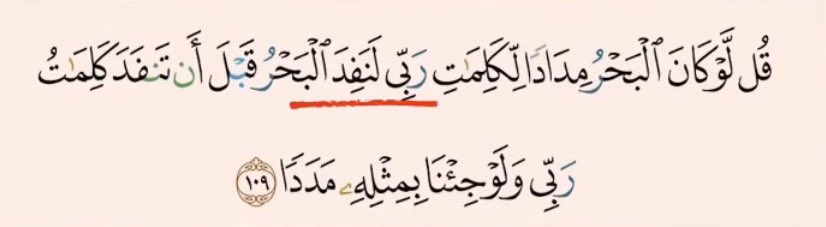 قُل لَّوْ كَانَ ٱلْبَحْرُ مِدَادًا لِّكَلِمَٰتِ رَبِّى لَنَفِدَ ٱلْبَحْرُ قَبْلَ أَن تَنفَدَ كَلِمَٰتُ
رَبِّى وَلَوْ جِئْنَا بِمِثْلِهِۦ مَدَدًا ١٠٩